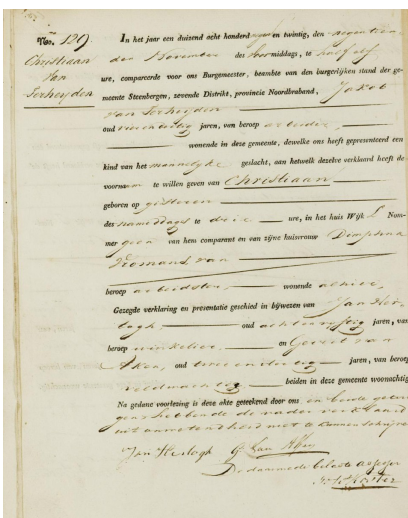 No. 129.
Christiaan
van
Terheyden
In het jaar een duizend acht honderd negen en twintig, den negentien
den November des voormiddags, te half elf
ure, compareerde voor ons Burgemeester, beambte van den burgerlijken stand der ge-
meente Steenbergen, zevende Distrikt, provincie Noordbraband, Jakob
van Terheyden
oud jaren, van beroep arbeider,
wonende in deze gemeente, dewelke ons heeft gepresenteerd een
kind van het mannelyke geslacht, aan hetwelk dezelve verklaard heeft de
voornaam te willen geven van Christiaan
geboren op gisteren
des namiddags te drie ure, in het huis Wijk L Num-
mer geen van hem comparant en van zijne huisvrouw Dimphena
Romans, van
beroep arbeidster, wonende alhier,
Gezegde verklaring en presentatie geschied in bijwezen van Jan Her-
togh, oud jaren, van
beroep winkelier, en Gerret van
Aken, oud jaren, van beroep
veldwachter, beiden in deze gemeente woonachtig
Na gedane voorlezing is deze akte geteekend door ons en beide getui
gens hebbende de vader verklaard
uit aanmerkend niet te kunnen schrijven
Jan Hertogh G. Van Aken
De daarmede belaste assessor